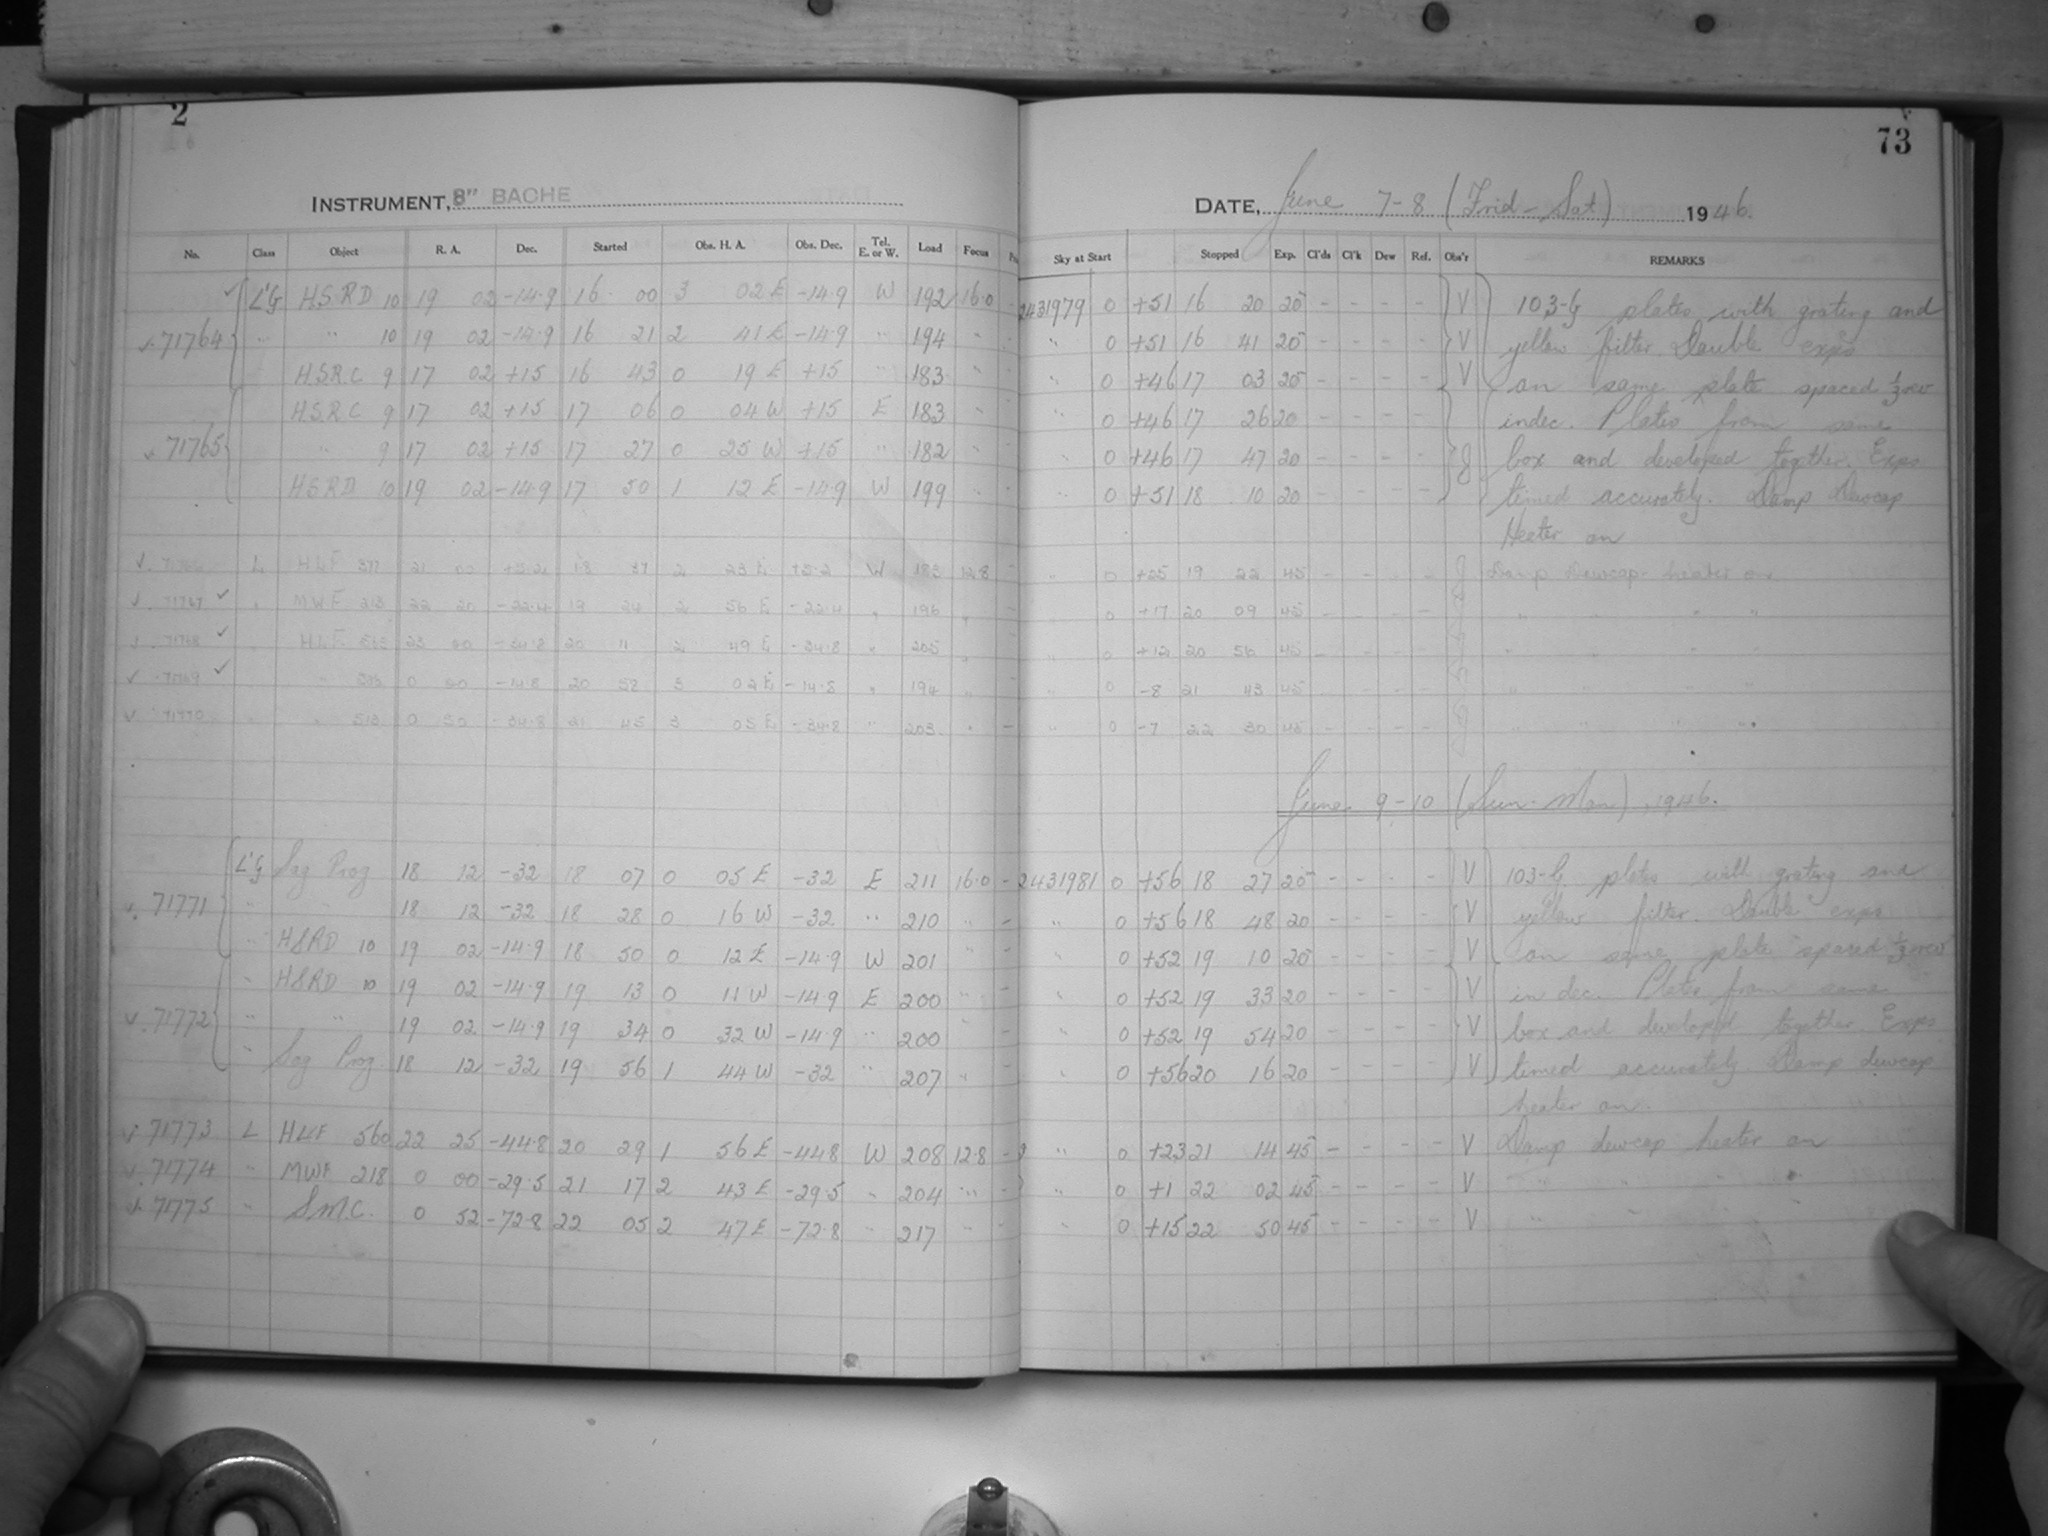 2
73
INSTRUMENT, 8" BACHE
DATE, June 7-8 (Frid-Sat) 1946.
No. Class Object R. A. Dec. Started Obs. H. A. Obs. Dec. Tel. E. or W. Load Focus Sky at Start Stopped Exp. Cl'ds Cl'k Dew Ref. Obs'r REMARKS
L'G H.S.RD 10 19 02 -14.9 16 00 3 02 E -14.9 W 192 16.0 - 2431979 0 +51 16 20 20 - - - - V 103-G plates with grating and
71764 " " 10 19 02 -14.9 16 21 2 41 E -14.9 " 194 " " 0 +51 16 41 20 - - - - V yellow filter. Double expo
H.S.R.C 9 17 02 +15 16 43 0 19 E +15 " 183 " " 0 +46 17 03 20 - - - - V on same plate spaced 1/3 rev
H.S.R.C 9 17 02 +15 17 06 0 04 W +15 E 183 " " 0 +46 17 26 20 - - - - in dec. Plates from same
71765 " 9 17 02 +15 17 27 0 25 W +15 " 182 " " 0 +46 17 47 20 - - - - J box and developed together. Expo
H.S.R.D 10 19 02 -14.9 17 50 1 12 E -14.9 W 199 " " 0 +51 18 10 20 - - - - timed accurately. Damp Dewcap
Heater on
L HLF 21 00 18 37 2 23 E W 12.8 - " 0 +25 19 22 45 - - - - J Damp Dewcap heater on
71767 " MWF 213 22 20 -22.4 19 24 2 56 E -22.4 " 196 " - " 0 +17 20 09 45 - - - - J " " " "
71768 " HLF 23 00 -34.8 20 11 2 49 E -34.8 " 205 " " 0 +12 20 56 45 - - - - J " " " "
71769 " 0 00 -14.8 20 58 3 02 E -14.8 " 194 " " 0 -8 21 43 45 - - - - J " " " "
71770 " " 513 0 50 -34.8 21 45 3 03 E -34.8 " 203 " - " 0 -7 22 30 45 - - - - J " " " "
June 9-10 (Sun-Mon), 1946.
L'G Sag Prog 18 12 -32 18 07 0 05 E -32 E 211 16.0 - 2431981 0 +56 18 27 20 - - - - V 103-G plates with grating and
71771 " " 18 12 -32 18 28 0 16 W -32 " 210 " - " 0 +56 18 48 20 - - - - V yellow filter. Double expo
" HSRD 10 19 02 -14.9 18 50 0 12 E -14.9 W 201 " - " 0 +52 19 10 20 - - - - V on same plate spaced 1/3 rev
" HSRD 10 19 02 -14.9 19 13 0 11 W -14.9 E 200 " - " 0 +52 19 33 20 - - - - V in dec. Plates from same
71772 " " 19 02 -14.9 19 34 0 32 W -14.9 " 200 " - " 0 +52 19 54 20 - - - - V box and developed together. Expo
" Sag Prog. 18 12 -32 19 56 1 44 W -32 " 207 " - " 0 +56 20 16 20 - - - - V timed accurately. Damp dewcap
heater on.
71773 L HLF 560 22 25 -44.8 20 29 1 56 E -44.8 W 208 12.8 - " 0 +23 21 14 45 - - - - V Damp dewcap heater on
71774 " MWF 218 0 00 -29.5 21 17 2 43 E -29.5 " 204 " - " 0 +1 22 02 45 - - - - V " " " "
71775 " S.M.C. 0 52 -72.8 22 05 2 47 E -72.8 " 217 " - " 0 +15 22 50 45 - - - - V " " " "